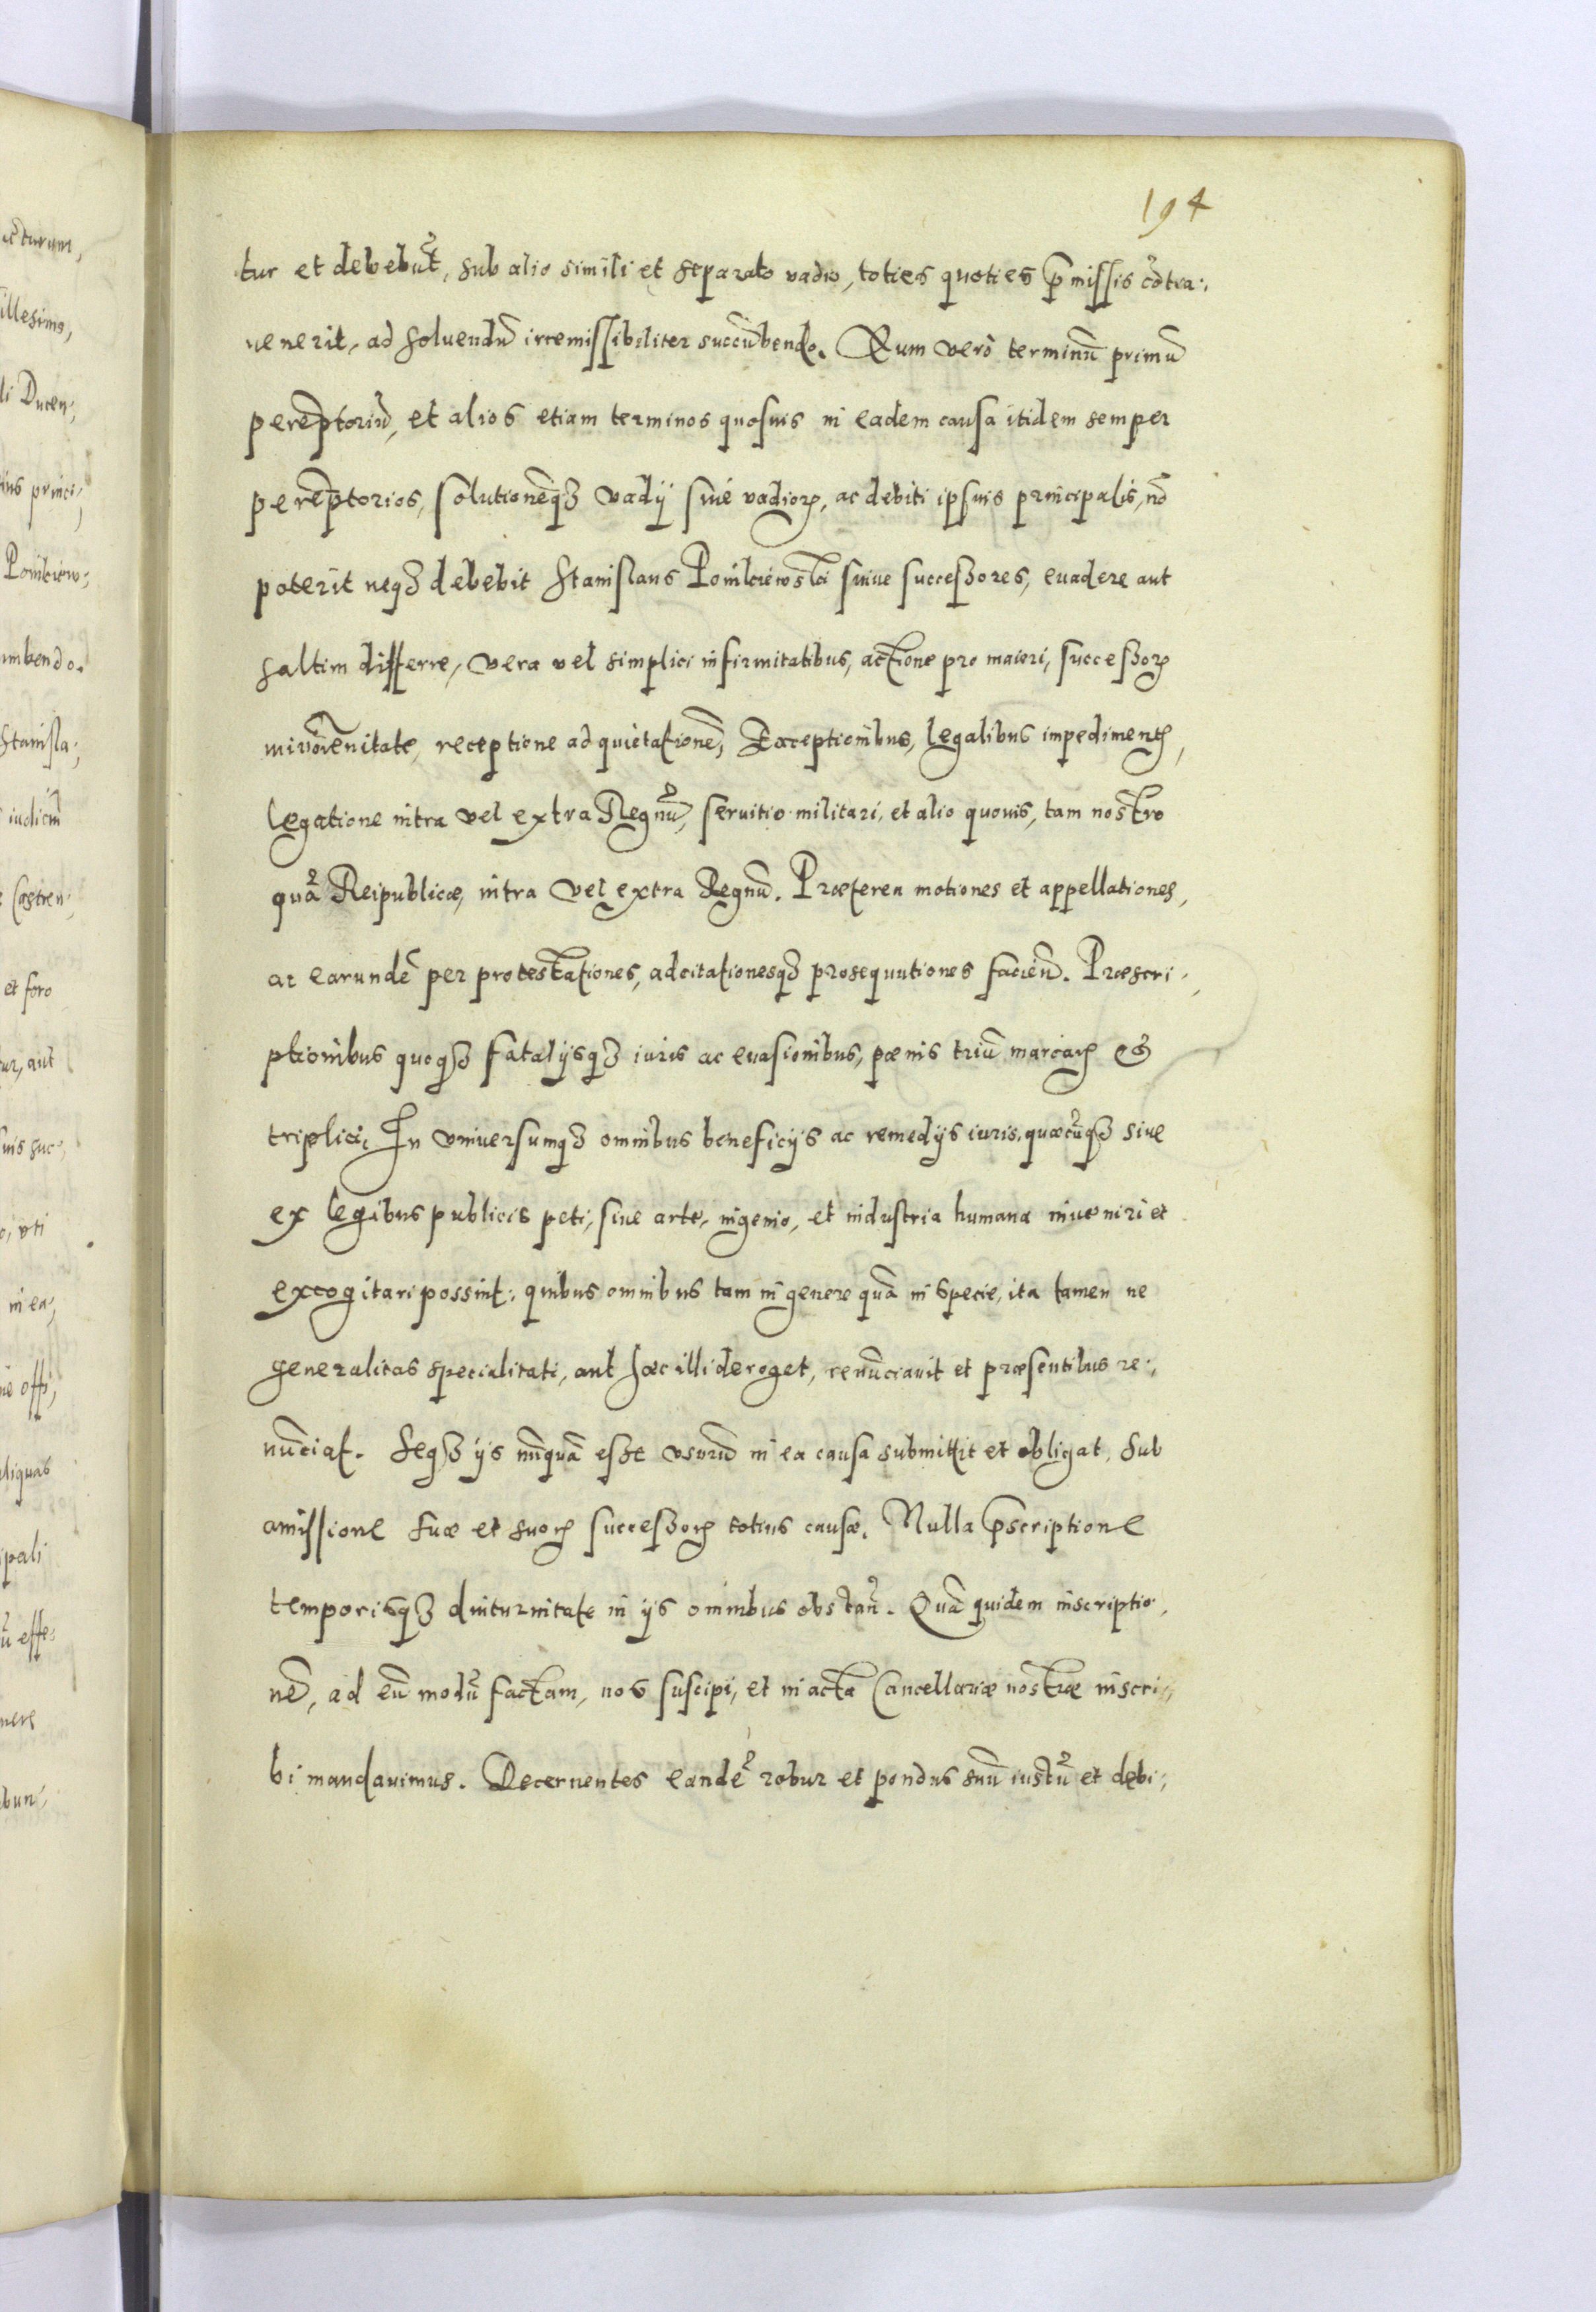 194
tur et debebũt, sub alio simili et separato vadio, toties quoties p̃missis cõtra:
uenerit, ad soluendũ irremissibiliter succũbendo. Eum verò terminũ primũ
perẽptoriũ, et alios etiam terminos quosuis in eadem causa itidem semper
perẽptorios, solutionẽqꝫ vadij siue vadioꝝ, ac debiti ipsius principalis, nõ
poterit neqꝫ debebit Stanislaus suiue successores, euadere aut
saltim differre, vera vel simplici infirmitatibus, actione pro maiori, successoꝝ
minorẽnitate, receptione ad quietationẽ, Exceptionibus, legalibus impedimentꝭ,
legatione intra vel extra Regnũ, seruitio militari, et alio quouis, tam nostro
quã Reipublicæ, intra vel extra Regnũ. Præterea motiones et appellationes,
ac earundẽ per protestationes, adcitationesqꝫ prosequutiones facieñ. Præscri,
ptionibus quoqꝫ fatalijsqꝫ iuris ac euasionibus, pœnis triũ marcaꝝ &
triplici, In vniuersumqꝫ omnibus beneficijs ac remedijs iuris, quæcũqꝫ siue
ex legibus publicis peti, siue arte, ingenio, et industria humana inueniri et
excogitari possint: quibus omnibus tam in genere quã in specie, ita tamen ne
generalitas specialitati, aut hæc illi deroget, renũciauit et præsentibus re:,
nũciat. Seqꝫ ijs nũquã esse vsurũ in ea causa submittit et obligat, sub
amissione suæ et suoꝝ successoꝝ totius causæ. Nulla p̃scriptione
temporisqꝫ diuturnitate in ijs omnibus obstañ. Quã quidem inscriptio,
nẽ, ad eũ modũ factam, nos suscipi, et in acta Cancellariæ nostræ inscri,
bi mandauimus. Decernentes eandẽ robur et pondus suũ iustũ et debi;